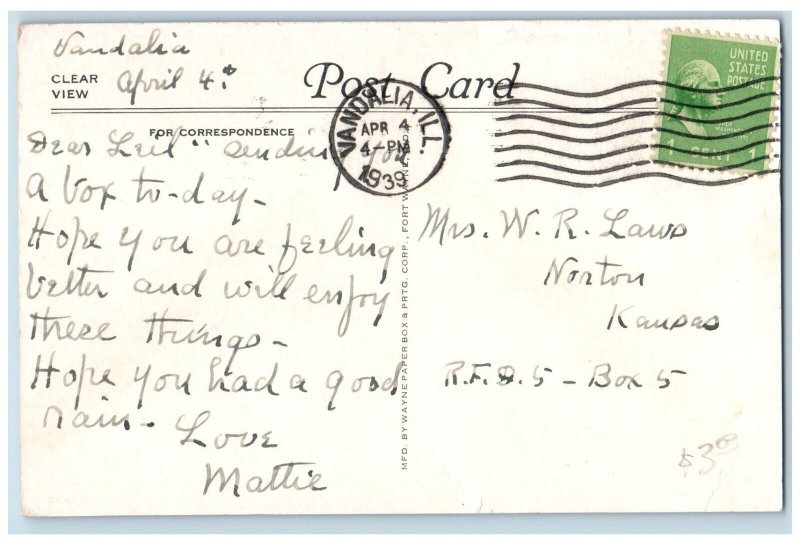 Vandalia
April 4th
CLEAR
VIEW
Post Card
FOR CORRESPONDENCE
Dear " sending you
A box to-day-
Hope you are feeling
better and will enjoy
these things-
Hope you had a good
rain-
Love
Mattie
MFD. BY WAYNE PAPER BOX & PRTG. CORP., FORT WAYNE, IND.
VANDALIA, ILL.
APR 4
4-PM
1939
UNITED
STATES
POSTAGE
WASHINGTON
1 CENT 1
Mrs. W. R. Laws
Norton
Kansas
R.F.D. 5 - Box 5
$3.00